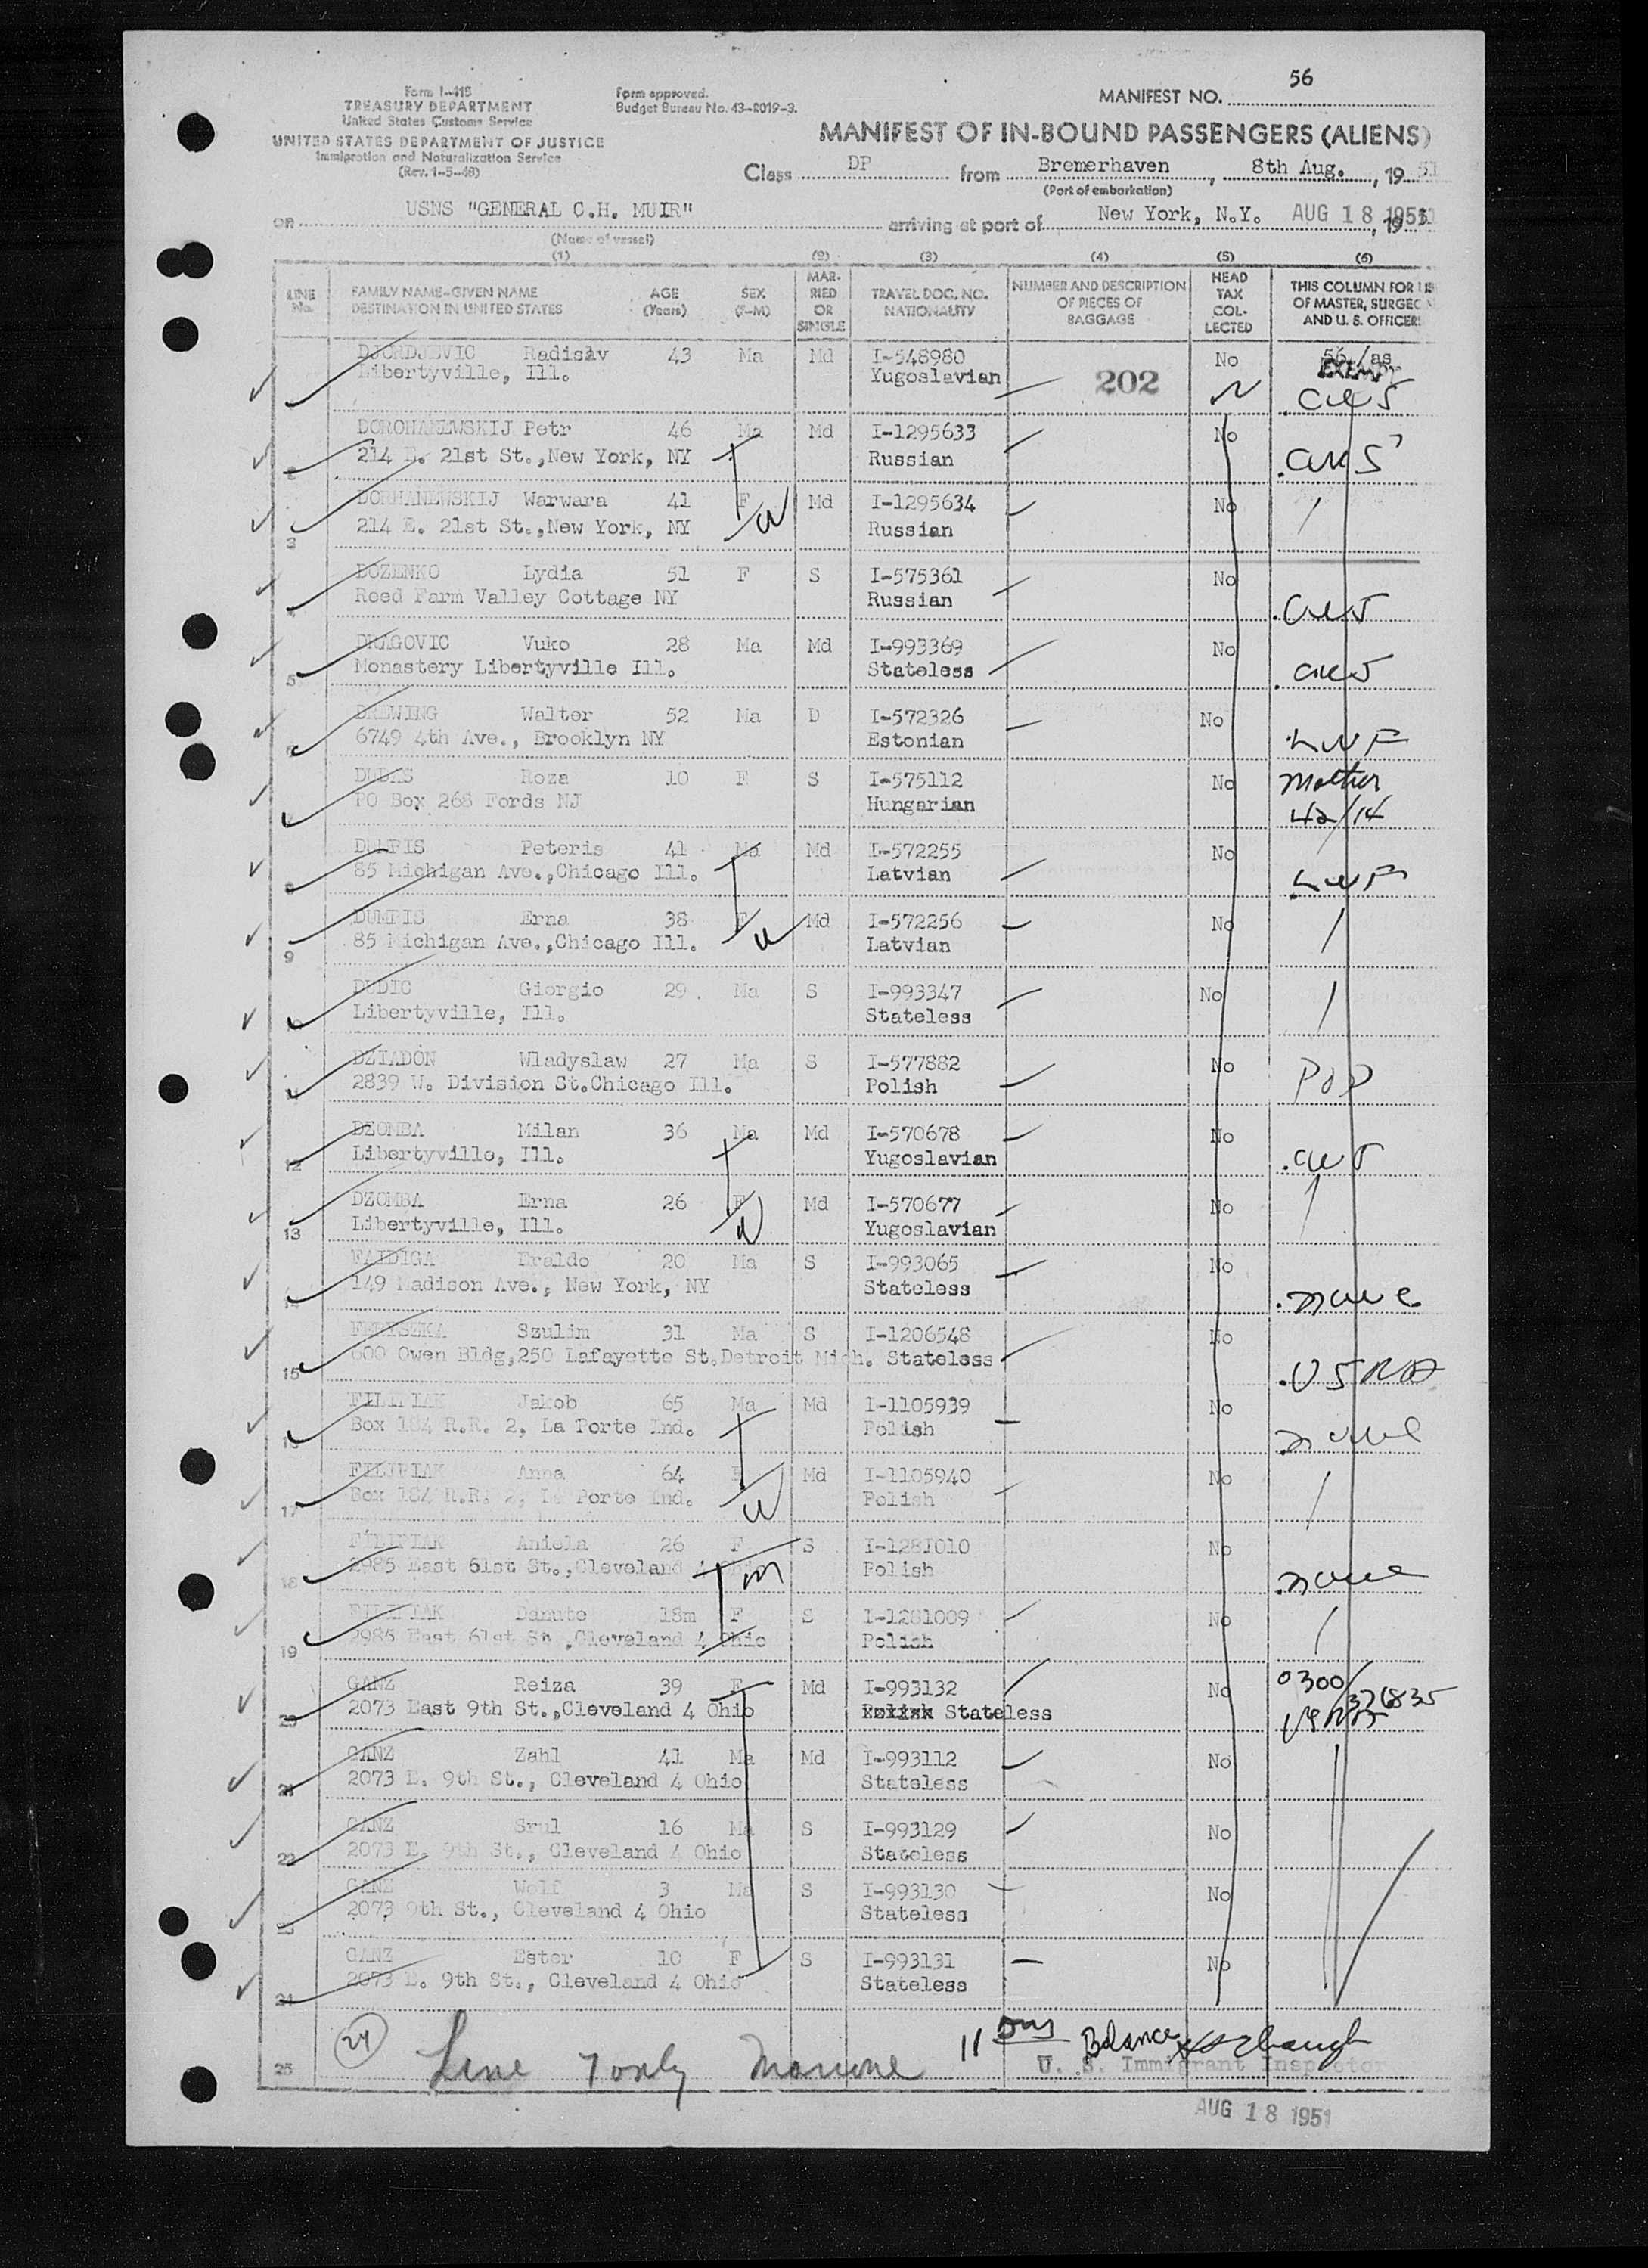 56
Form I-418
TREASURY DEPARTMENT
United States Customs Service
UNITED STATES DEPARTMENT OF JUSTICE
Immigration and Naturalization Service
(Rev. 1-5-48)
Form approved.
Budget Bureau No. 43-R019-3.
MANIFEST NO.
MANIFEST OF IN-BOUND PASSENGERS (ALIENS)
Class DP from Bremerhaven, 8th Aug., 1951
(Port of embarkation)
on USNS "GENERAL C.H. MUIR" arriving at port of New York, N.Y. AUG 18 1951, 19
(Name of vessel)
(1) (2) (3) (4) (5) (6)
LINE No. FAMILY NAME-GIVEN NAME DESTINATION IN UNITED STATES AGE (Years) SEX (F-M) MARRIED OR SINGLE TRAVEL DOC. NO. NATIONALITY NUMBER AND DESCRIPTION OF PIECES OF BAGGAGE HEAD TAX COLLECTED THIS COLUMN FOR US OF MASTER, SURGEON AND U. S. OFFICERS
DJORDJEVIC Radislav 43 Ma Md I-548980 No
Libertyville, Ill. Yugoslavian 202 EXEMPT
DOROHANEWSKIJ Petr 46 Ma Md I-1295633 No
2 214 E. 21st St.,New York, NY Russian
DORHANEWSKIJ Warwara 41 F Md I-1295634 No
3 214 E. 21st St.,New York, NY Russian
DOZENKO Lydia 51 F S I-575361 No
4 Reed Farm Valley Cottage NY Russian
DRAGOVIC Vuko 28 Ma Md I-993369 No
5 Monastery Libertyville Ill. Stateless
DREWING Walter 52 Ma D I-572326 No
6 6749 4th Ave., Brooklyn NY Estonian LWF
DUDAS Roza 10 F S I-575112 No Mother
PO Box 268 Fords NJ Hungarian 42/14
DUMPIS Peteris 41 Ma Md I-572255 No
8 85 Michigan Ave.,Chicago Ill. Latvian LWF
DUMPIS Erna 38 F Md I-572256 No
9 85 Michigan Ave.,Chicago Ill. Latvian
DUDIC Giorgio 29 Ma S I-993347 No
10 Libertyville, Ill. Stateless
DZIADON Wladyslaw 27 Ma S I-577882 No
11 2839 W. Division St.Chicago Ill. Polish
DZOMBA Milan 36 Ma Md I-570678 No
12 Libertyville, Ill. Yugoslavian
DZOMBA Erna 26 F Md I-570677 No
13 Libertyville, Ill. Yugoslavian
FAIDIGA Eraldo 20 Ma S I-993065 No
14 149 Madison Ave., New York, NY Stateless
FERYSZKA Szulim 31 Ma S I-1206548 No
15 600 Owen Bldg,250 Lafayette St.Detroit Mich. Stateless USNA
FILIPIAK Jakob 65 Ma Md I-1105939 No
16 Box 184 R.R. 2, La Porte Ind. Polish
FILIPIAK Anna 64 F Md I-1105940 No
17 Box 184 R.R. 2, La Porte Ind. Polish
FILIPIAK Aniela 26 F S I-1281010 No
18 2985 East 61st St.,Cleveland 4 Ohio Polish
FILIPIAK Danute 18m F S I-1281009 No
19 2985 East 61st St.,Cleveland 4 Ohio Polish
GANZ Reiza 39 F Md I-993132 No 0300/
20 2073 East 9th St.,Cleveland 4 Ohio Polish Stateless
GANZ Zahl 41 Ma Md I-993112 No
21 2073 E. 9th St., Cleveland 4 Ohio Stateless
GANZ Srul 16 Ma S I-993129 No
22 2073 E. 9th St., Cleveland 4 Ohio Stateless
GANZ Wolf 3 Ma S I-993130 No
23 2073 9th St., Cleveland 4 Ohio Stateless
GANZ Ester 10 F S I-993131 No
24 2073 E. 9th St., Cleveland 4 Ohio Stateless
24
25 Line 7 only Balance
U. S. Immigrant Inspector
AUG 18 1951